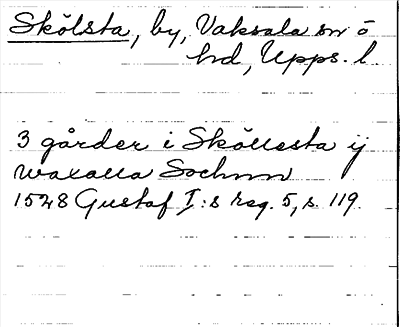 Skölsta, by, Vaksala sn o
hd, Upps. l.
3 gårder i Sköllesta ij
Waxalla Sochnn
1528 Gustaf I:s reg. 5, s. 119.